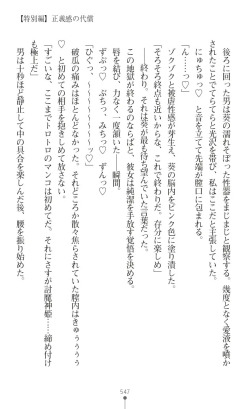 【特別編】正義感の代償
後ろに回った男は葵の濡れそぼった性器をまじまじと観察する。幾度となく愛液を噴か
されたことでてらてらと光沢を帯び、私はここだと主張していた。
にゅちゅっ♡　と音を立てて先端が膣口に包まれる。
「ん……っ♡」
ゾクゾクと被虐性感が芽生え、葵の脳内をピンク色に塗り潰した。
「そろそろ終点も近いからな、これで終わりだ。存分に楽しめ」
――終わり。それが、葵が最も待ち望んでいた言葉だった。
この地獄が終わるのならばと、彼女は純潔を手放す覚悟を決める。
唇を結び、力なく、一度頷いた――瞬間。
ずぷっ♡　ぷちっ、みちっ♡　ずんっ♡
「ひぐっ、～～～～～～～っ♡」
破瓜の痛みはほとんどなかった。それどころか散々焦らされていた膣内はきゅぅぅぅぅ
♡　と初めての相手を抱きしめて放さない。
「すごいな、ここまでトロトロのマンコは初めてだ。それにさすが討魔神姫……締め付け
も極上だ」
男は十秒ほど静止して中の具合を楽しんだ後、腰を振り始めた。
547